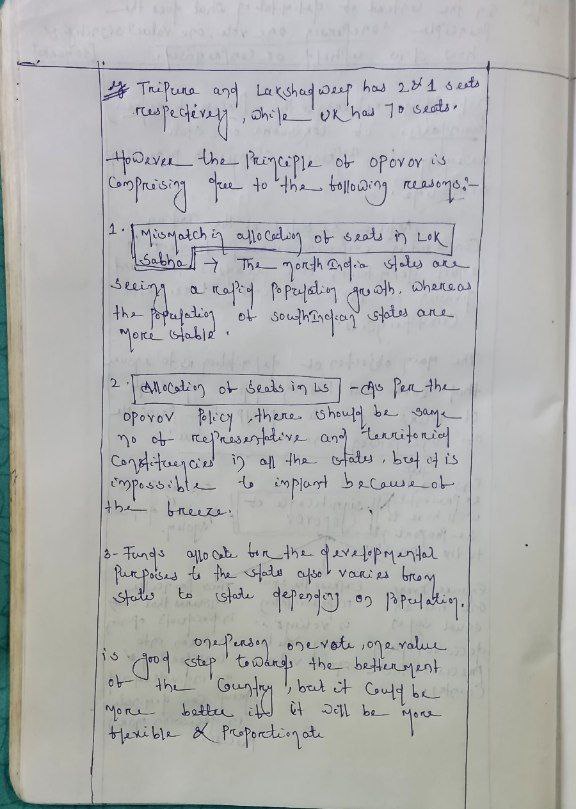 eg Tripura and Lakshadweep has 2 & 1 seats
respectively, while UK has 70 seats.
However the Principle of OPOVOV is
Comprising due to the following reasons:-
1. Mismatch in allocation of seats in LOK
Sabha → The north India states are
seeing a rapid population growth, whereas
the population of south Indian states are
more stable.
2. Allocation of Seats in LS - As Per the
OPOVOV Policy, there should be same
no of representative and territorial
Constituencies in all the states, but it is
impossible to implant because of
the breeze.
3- Funds allocate for the developmental
Purposes to the states also varies from
state to state depending on population.
one Person one vote, one value
is good step towards the betterment
of the Country, but it could be
more better if it will be more
flexible & Proportionate